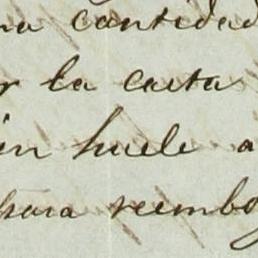 cantidad
la carta
huele a
para reembo